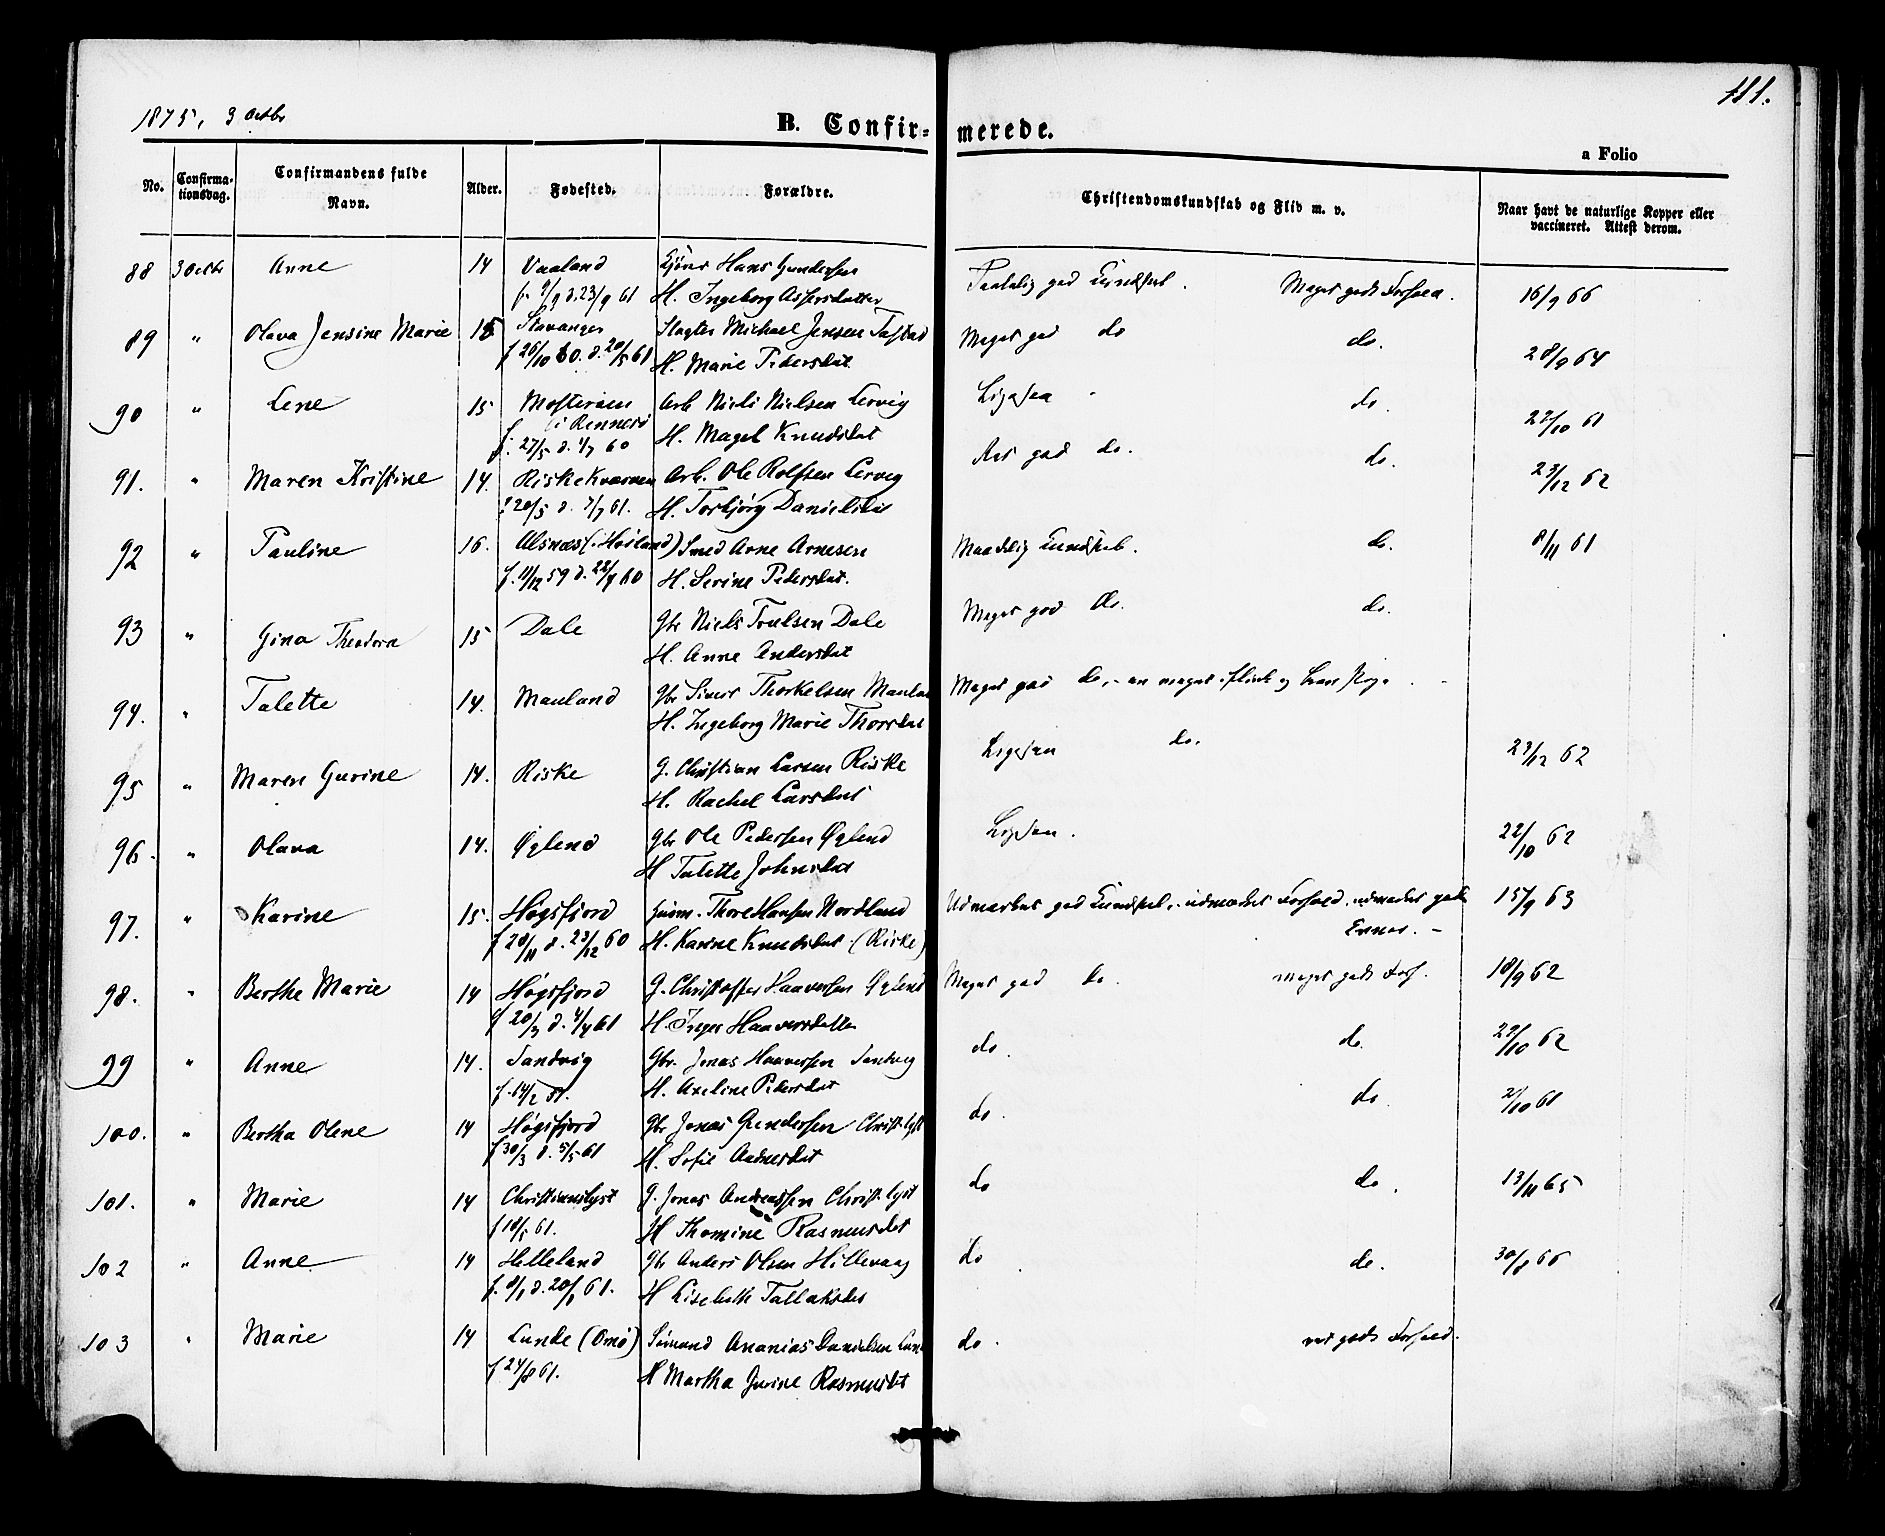 111.
1875, 3 Octbr
B. Confirmerede.
a Folio
No. Confirmationsdag. Confirmandens fulde Navn. Alder. Fødested. Forældre. Christendomskundskab og Flid m. v. Naar havt de naturlige Kopper eller vaccineret. Attest derom.
88 3 Octbr Anne 14 Vaaland Hans Gundersen god Kundskab. Meget godt Forhold. 16/9 66
f. 9/9 d. 23/9 61 H. Ingeborg Asersdatter
89 " Olava Jensine Marie 15 Stavanger Slagter Michael Jensen Tastad Meget god do do. 28/9 64
f 26/10 60. d. 20/5 61 H. Marie Pedersdat.
90 " Lene 15 Mosterøen Arb Niels Nielsen Lervig Ligesaa do. 27/10 61
i Rennesø
f. 27/5 d. 1/7 60 H. Magel Knudsdat
91. " Maren Kristine 14. Riskekværnen Arb. Ole Rolfsen Lervig god do. do. 23/12 62
f 20/5 d. 7/7 61. H. Torbjørg Danielsdat
92 " Pauline 16. Alsnæs (i Høiland) Smed Arne Arnesen Maadelig Kundskab. do. 8/11 61
f. 11/12 59 d. 22/4 60 H. Serine Pedersdat.
93 " Gina Theodora 15 Dale Gbr Niels Troelsen Dale Meget god do. do.
H. Anne Andersdat
94. " Talette 14. Mauland Gbr Simer Thorkelsen Mauland Meget god do, - en meget flink og brav Pige
H. Ingeborg Marie Thorsdat
95 " Maren Gurine 14. Riske G. Christian Larsen Riske Ligesaa do. 23/12 62
H. Rachel Larsdat
96. " Olava 14. Øglend Gbr Ole Pedersen Øglend Ligesaa. 22/10 62
H Talette Johnsdat
97. " Karine 15. Høgsfjord Huusm. Thore Hansen Nordland Udmærket god Kundskab, - udmærket Forhold, udmærket gode 15/9 63
f 28/11 d. 23/12 60 H. Karine Knudsdat (Riske) Evner. -
98. " Berthe Marie 14 Høgsfjord G. Christoffer Haaversen Øglend Meget god do. meget godt Forh. 18/9 62
f 20/3 d. 4/4 61 H. Inger Haaversdatter
99 " Anne 14. Sandvig Gbr. Jonas Haaversen Sandvig do. do. 22/10 62
f. 14/2 61. H. Axeline Pedersdat
100. " Bertha Olene 14 Høgsfjord Gbr Jonas Gundersen Christ.lyst do. do 2/10 61
f 30/3 d. 5/5 61 H. Sofie Aadnesdat
101. " Marie 14 Christianslyst G. Jonas Andreassen Christ.lyst do do. 13/11 65
61. H Thomine Rasmusdat
102 " Anne 14 Helleland Gbr Anders Olsen Hillevaag do do. 30/8 66
f. 8/1 d. 20/1 61. H Lisebeth Tallaksdat
103 " Marie 14 Lunde (Omø) Sømand Ananias Danielsen Lunde do. godt Forhold.
f 24/8 61. H Martha Gurine Rasmusdat